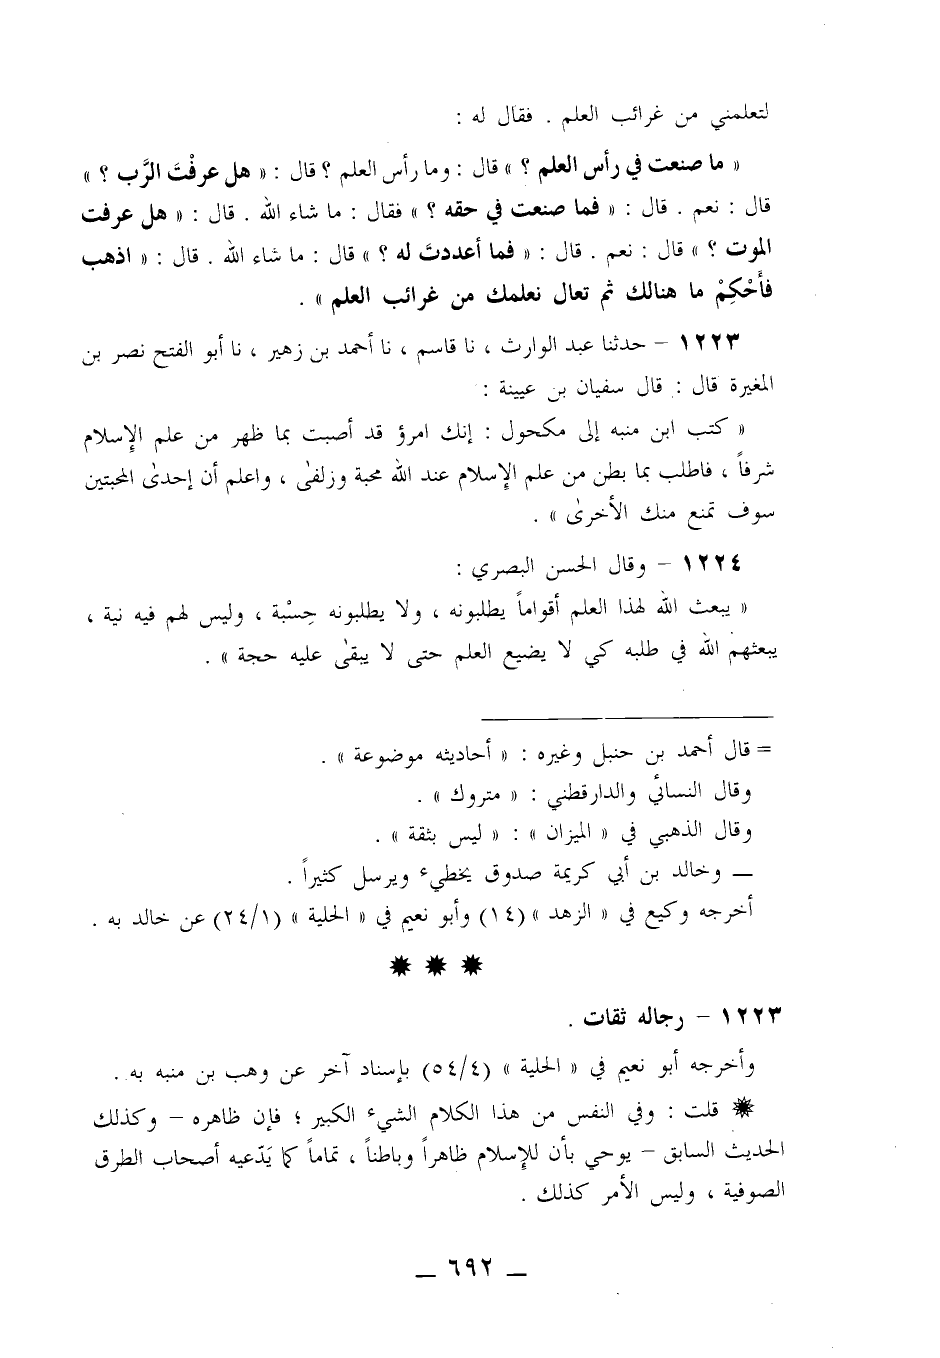 لتعلمني من غرائب العلم . فقال له :
« ما صنعت في رأس العلم ؟ » قال : وما رأس العلم ؟ قال : « هل عرفْتَ الرَّب ؟ »
قال : نعم . قال : « فما صنعت في حقه ؟ » فقال : ما شاء الله . قال : « هل عرفت
الموت ؟ » قال : نعم . قال : « فما أعددتَ له ؟ » قال : ما شاء الله . قال : « اذهب
فأَحْكِمْ ما هنالك ثم تعال نعلمك من غرائب العلم » .
١٢٢٣ – حدثنا عبد الوارث ، نا قاسم ، نا أحمد بن زهير ، نا أبو الفتح نصر بن
المغيرة قال : قال سفيان بن عيينة :
« كتب ابن منبه إلى مكحول : إنك امرؤ قد أصبت بما ظهر من علم الإسلام
شرفاً ، فاطلب بما بطن من علم الإسلام عند الله محبة وزلفىٰ ، واعلم أن إحدىٰ المحبتين
سوف تمنع منك الأخرىٰ » .
١٢٢٤ – وقال الحسن البصري :
« يبعث الله لهذا العلم أقواماً يطلبونه ، ولا يطلبونه حِسْبة ، وليس لهم فيه نية ،
يبعثهم الله في طلبه كي لا يضيع العلم حتى لا يبقىٰ عليه حجة » .
= قال أحمد بن حنبل وغيره : « أحاديثه موضوعة » .
وقال النسائي والدارقطني : « متروك » .
وقال الذهبي في « الميزان » : « ليس بثقة » .
— وخالد بن أبي كريمة صدوق يخطيء ويرسل كثيراً .
أخرجه وكيع في « الزهد » (١٤) وأبو نعيم في « الحلية » (٢٤/١) عن خالد به .
✹ ✹ ✹
١٢٢٣ – رجاله ثقات .
وأخرجه أبو نعيم في « الحلية » (٥٤/٤) بإسناد آخر عن وهب بن منبه به .
✹ قلت : وفي النفس من هذا الكلام الشيء الكبير ؛ فإن ظاهره – وكذلك
الحديث السابق – يوحي بأن للإسلام ظاهراً وباطناً ، تماماً كما يَدّعيه أصحاب الطرق
الصوفية ، وليس الأمر كذلك .
— ٦٩٢ —